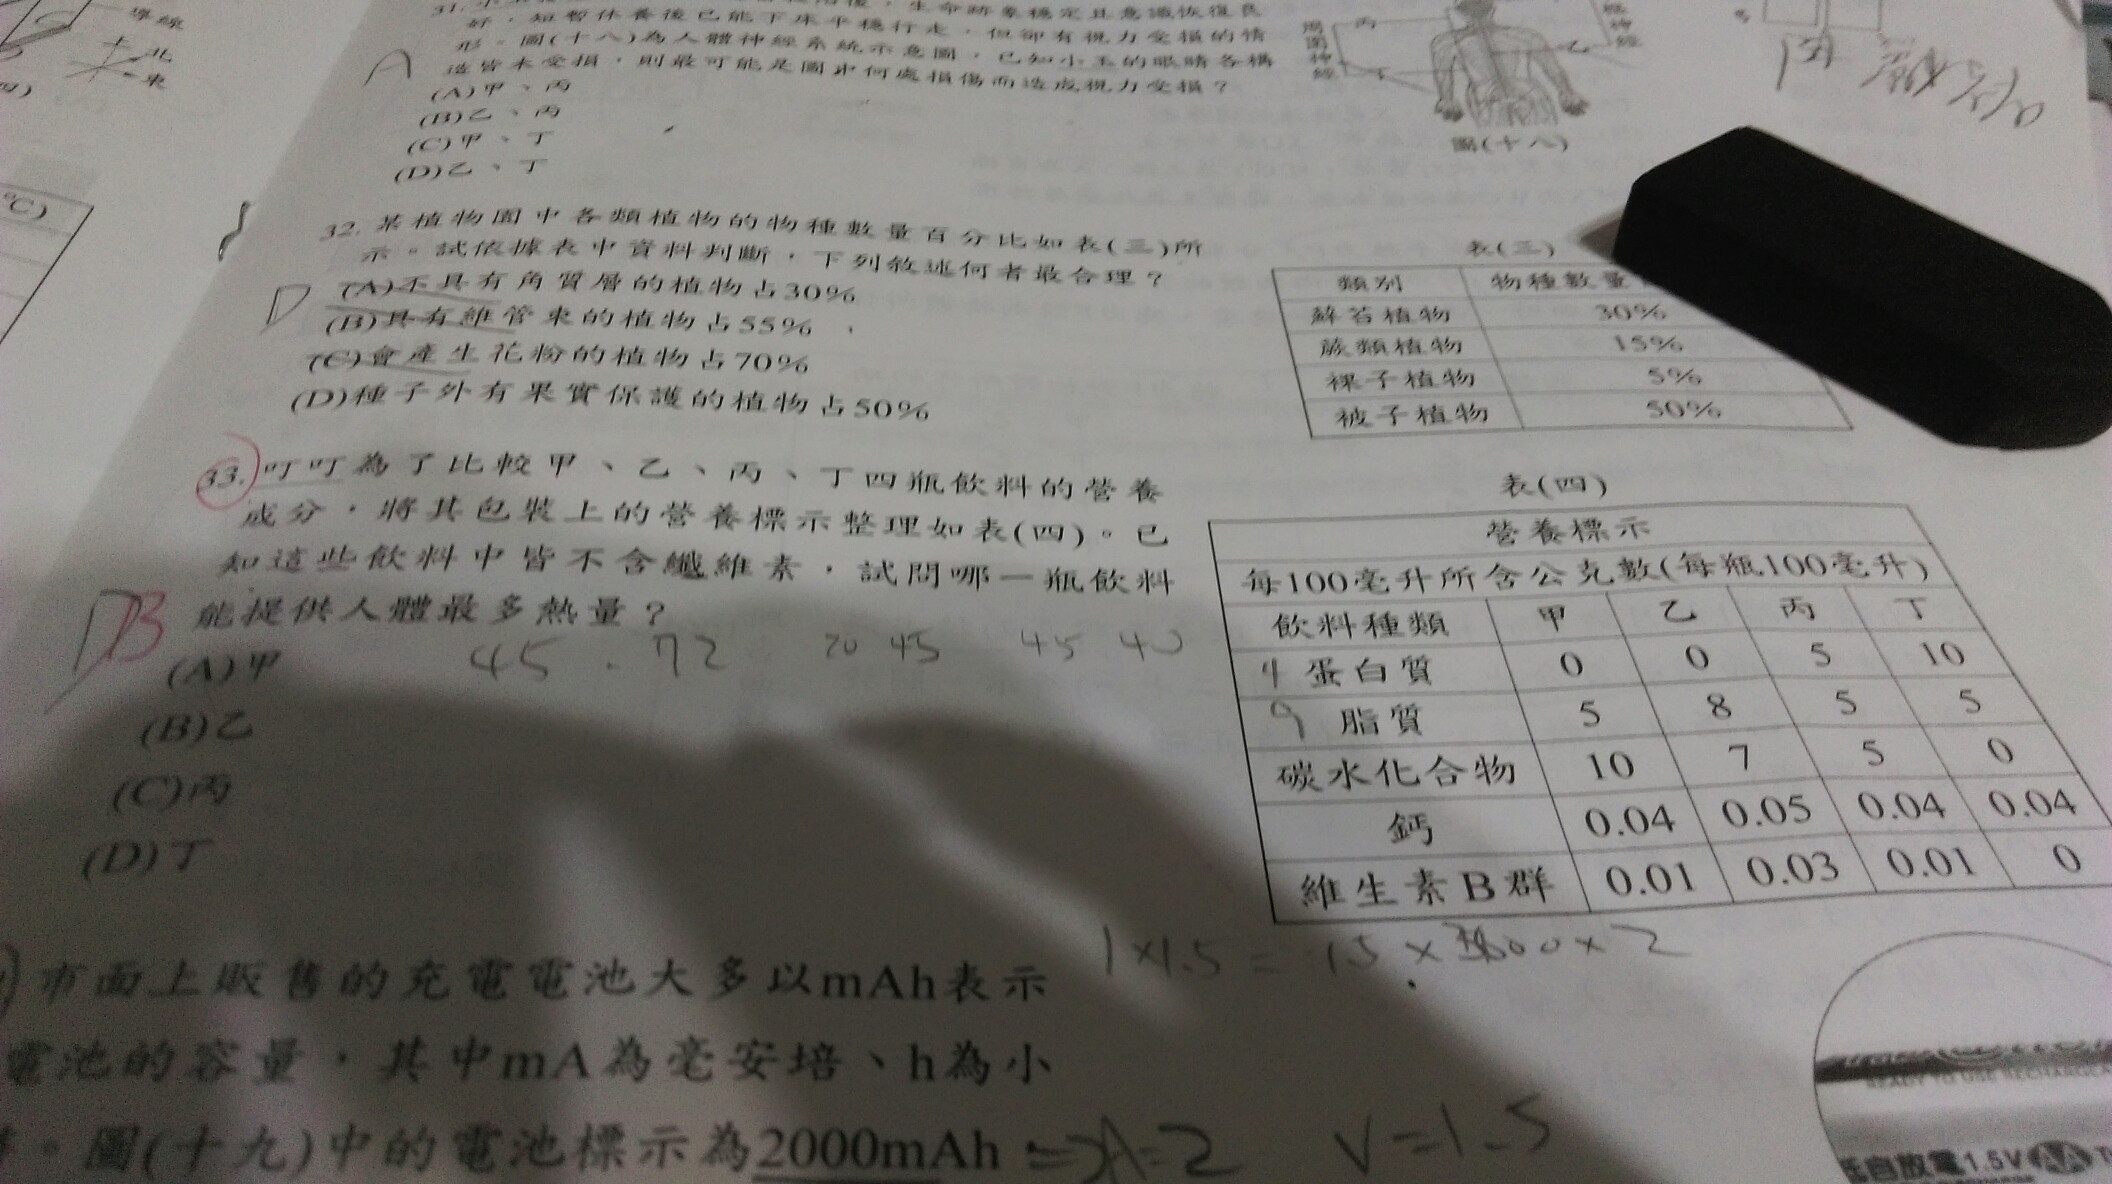 導線
北
東
好，短暫休養後已能下床平穩行走，但卻有視力受損的情
形。圖(十八)為人體神經系統示意圖，已知小玉的眼睛各構
造皆未受損，則最可能是圖中何處損傷而造成視力受損？
A
(A)甲、丙
(B)乙、丙
(C)甲、丁
(D)乙、丁
周圍神經
丙
丁
乙
神經
圖(十八)
℃)
32. 某植物園中各類植物的物種數量百分比如表(三)所
示。試依據表中資料判斷，下列敘述何者最合理？
D
(A)不具有角質層的植物占30%
(B)具有維管束的植物占55%
(C)會產生花粉的植物占70%
(D)種子外有果實保護的植物占50%
表(三)
類別 物種數量
蘚苔植物 30%
蕨類植物 15%
裸子植物 5%
被子植物 50%
33. 叮叮為了比較甲、乙、丙、丁四瓶飲料的營養
成分，將其包裝上的營養標示整理如表(四)。已
知這些飲料中皆不含纖維素，試問哪一瓶飲料
能提供人體最多熱量？
D B
(A)甲
(B)乙
(C)丙
(D)丁
45 . 72 20 45 45 40
表(四)
營養標示
每100毫升所含公克數(每瓶100毫升)
飲料種類 甲 乙 丙 丁
4 蛋白質 0 0 5 10
9 脂質 5 8 5 5
碳水化合物 10 7 5 0
鈣 0.04 0.05 0.04 0.04
維生素B群 0.01 0.03 0.01 0
1×1.5 =
市面上販售的充電電池大多以mAh表示
電池的容量，其中mA為毫安培、h為小
。圖(十九)中的電池標示為2000mAh
V=1.5
READY TO USE RECHARGEA
低自放電1.5V AA